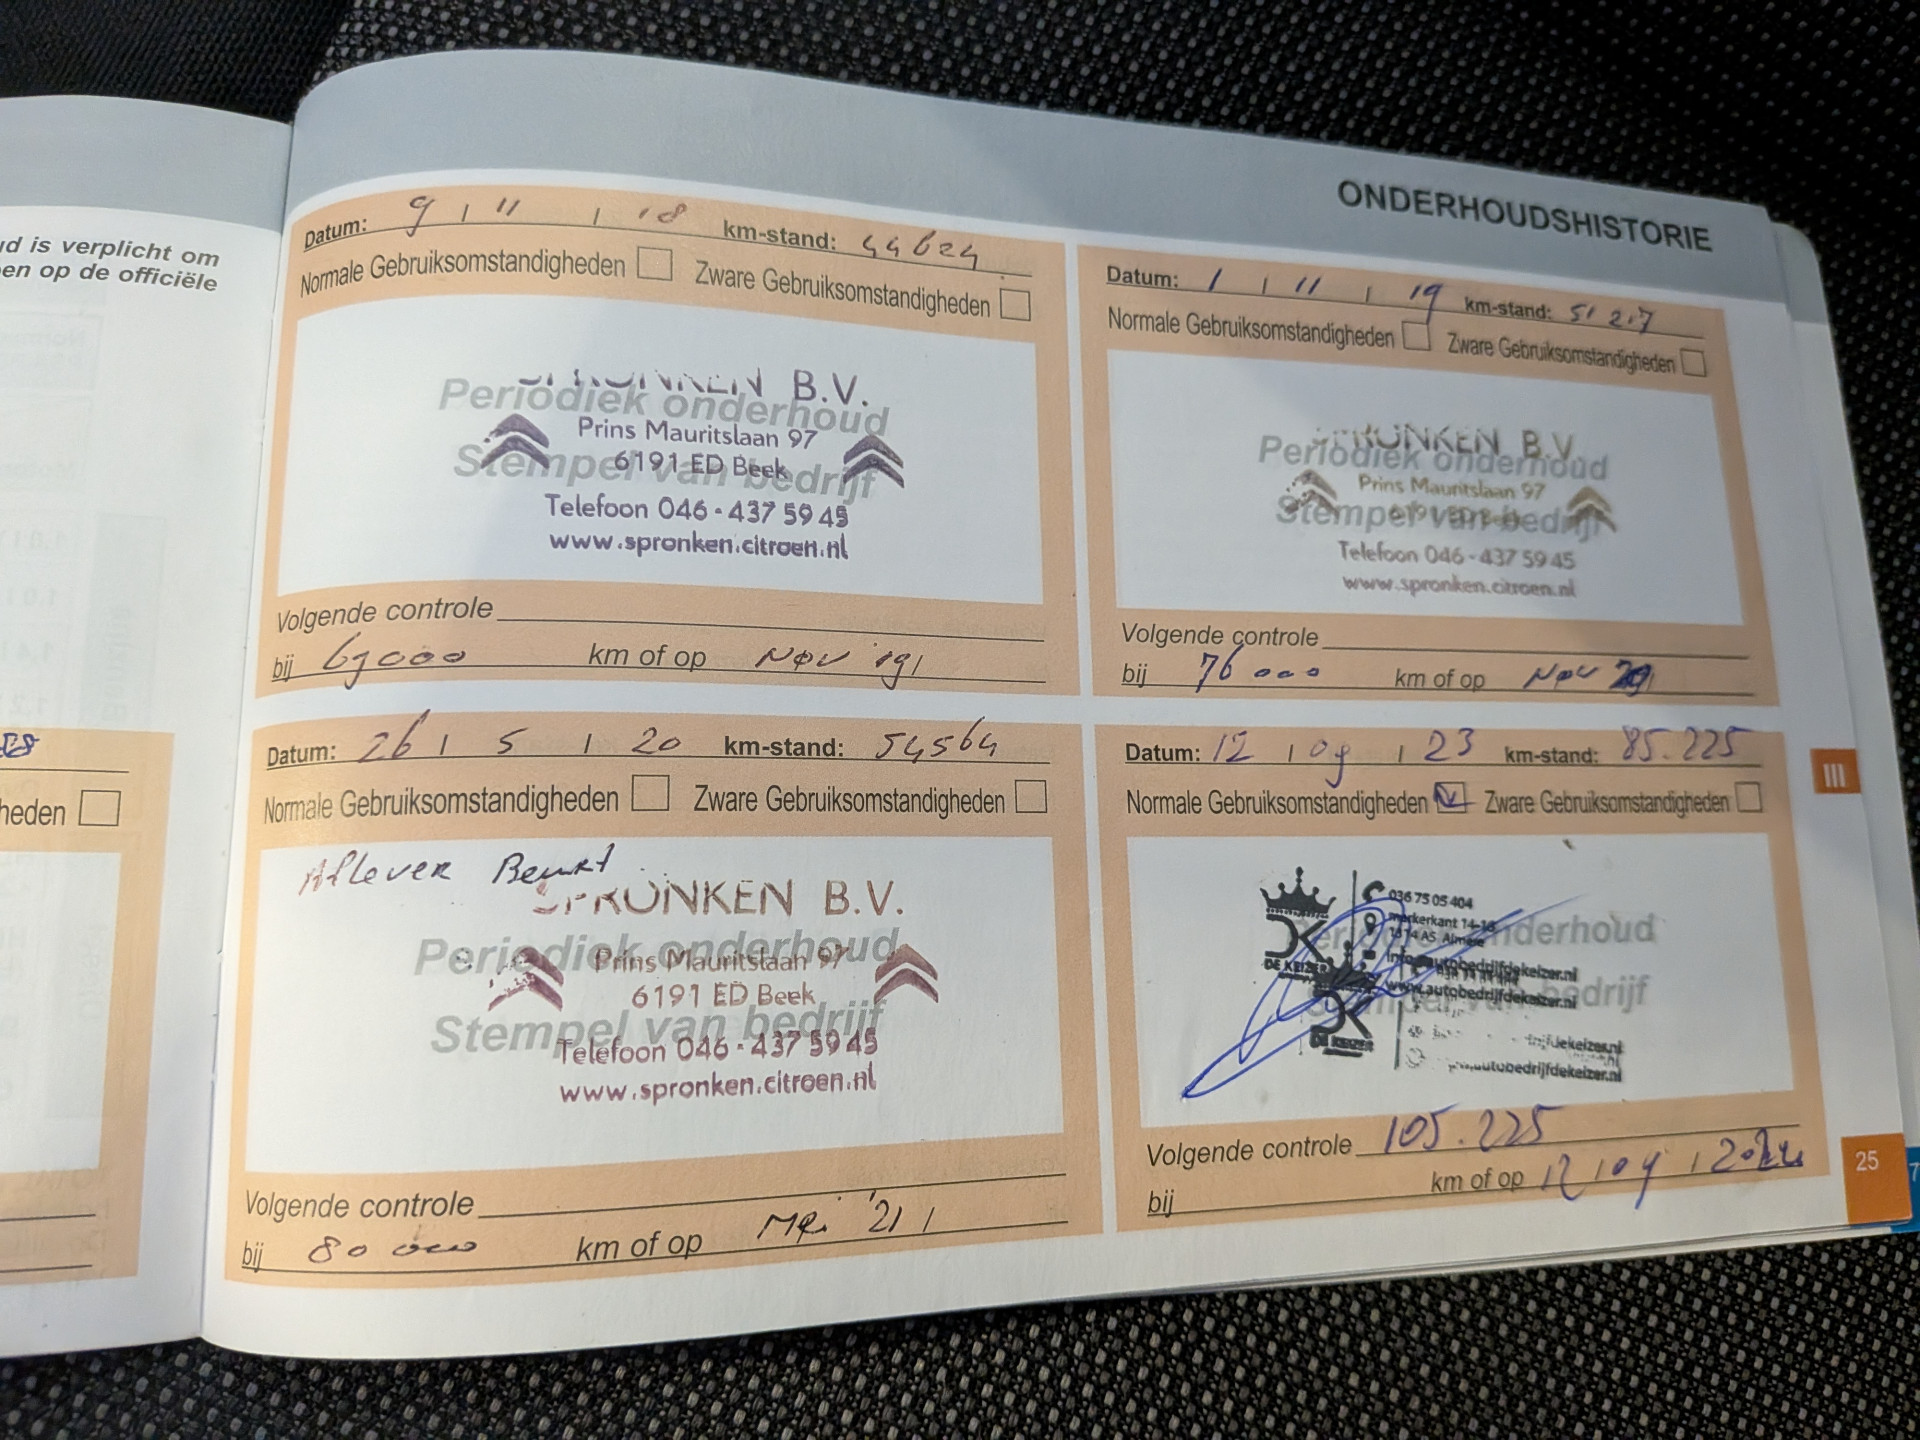 d is verplicht om
en op de officiële
heden
ONDERHOUDSHISTORIE
Datum: 9 / 11 / 18 km-stand: 44624
Normale Gebruiksomstandigheden Zware Gebruiksomstandigheden
SPRONKEN B.V.
Periodiek onderhoud
Prins Mauritslaan 97
6191 ED Beek
Stempel van bedrijf
Telefoon 046 - 437 59 45
www.spronken.citroen.nl
Volgende controle
bij 69000 km of op Nov '19 /
Datum: 1 / 11 / 19 km-stand: 51 217
Normale Gebruiksomstandigheden Zware Gebruiksomstandigheden
SPRONKEN B.V.
Periodiek onderhoud
Prins Mauritslaan 97
6191 ED Beek
Stempel van bedrijf
Telefoon 046 - 437 59 45
www.spronken.citroen.nl
Volgende controle
bij 76000 km of op Nov
Datum: 26 / 5 / 20 km-stand: 54564
Normale Gebruiksomstandigheden Zware Gebruiksomstandigheden
Aflever Beurt
SPRONKEN B.V.
Periodiek onderhoud
Prins Mauritslaan 97
6191 ED Beek
Stempel van bedrijf
Telefoon 046 - 437 59 45
www.spronken.citroen.nl
Volgende controle
bij 80 000 km of op Mei '21 /
Datum: 12 / 09 / 23 km-stand: 85.225
Normale Gebruiksomstandigheden Zware Gebruiksomstandigheden
036 75 05 404
markerkant 14-16
1314 AS Almere
Periodiek onderhoud
DK
DE KEIZER
info@autobedrijfdekeizer.nl
www.autobedrijfdekeizer.nl
Stempel van bedrijf
DK
DE KEIZER
rijfdekeizer.nl
autobedrijfdekeizer.nl
Volgende controle 105.225
bij km of op 12 / 09 / 2024
III
25
7